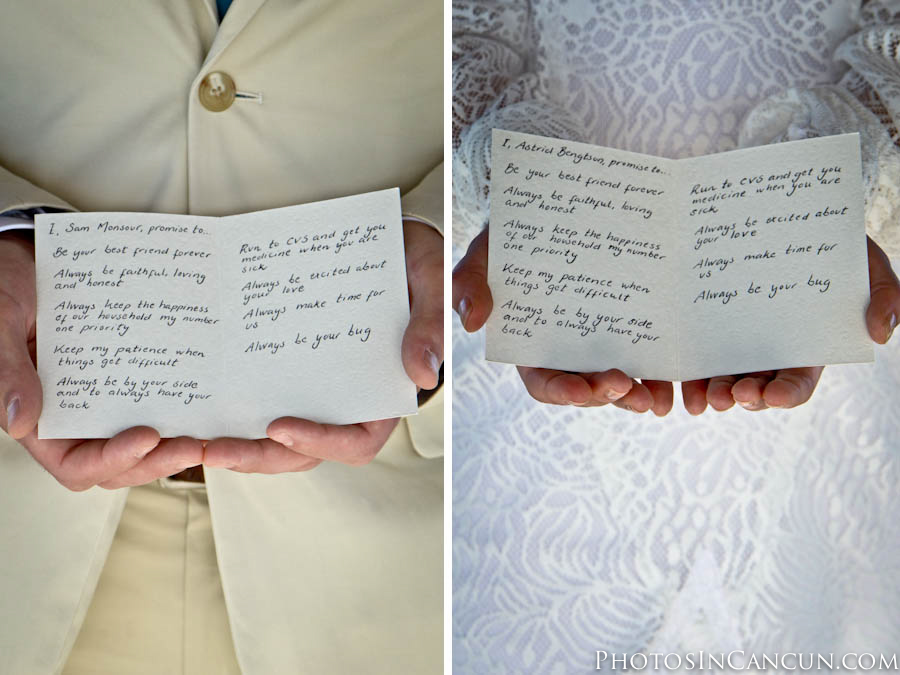 I, Sam Monsour, promise to...
Be your best friend forever
Always be faithful, loving
and honest
Always keep the happiness
of our household my number
one priority
Keep my patience when
things get difficult
Always be by your side
and to always have your
back
Run to CVS and get you
medicine when you are
sick
Always be excited about
your love
Always make time for
us
Always be your bug
I, Astrid Bengtson, promise to...
Be your best friend forever
Always be faithful, loving
and honest
Always keep the happiness
of our household my number
one priority
Keep my patience when
things get difficult
Always be by your side
and to always have your
back
Run to CVS and get you
medicine when you are
sick
Always be excited about
your love
Always make time for
us
Always be your bug
PhotosInCancun.com